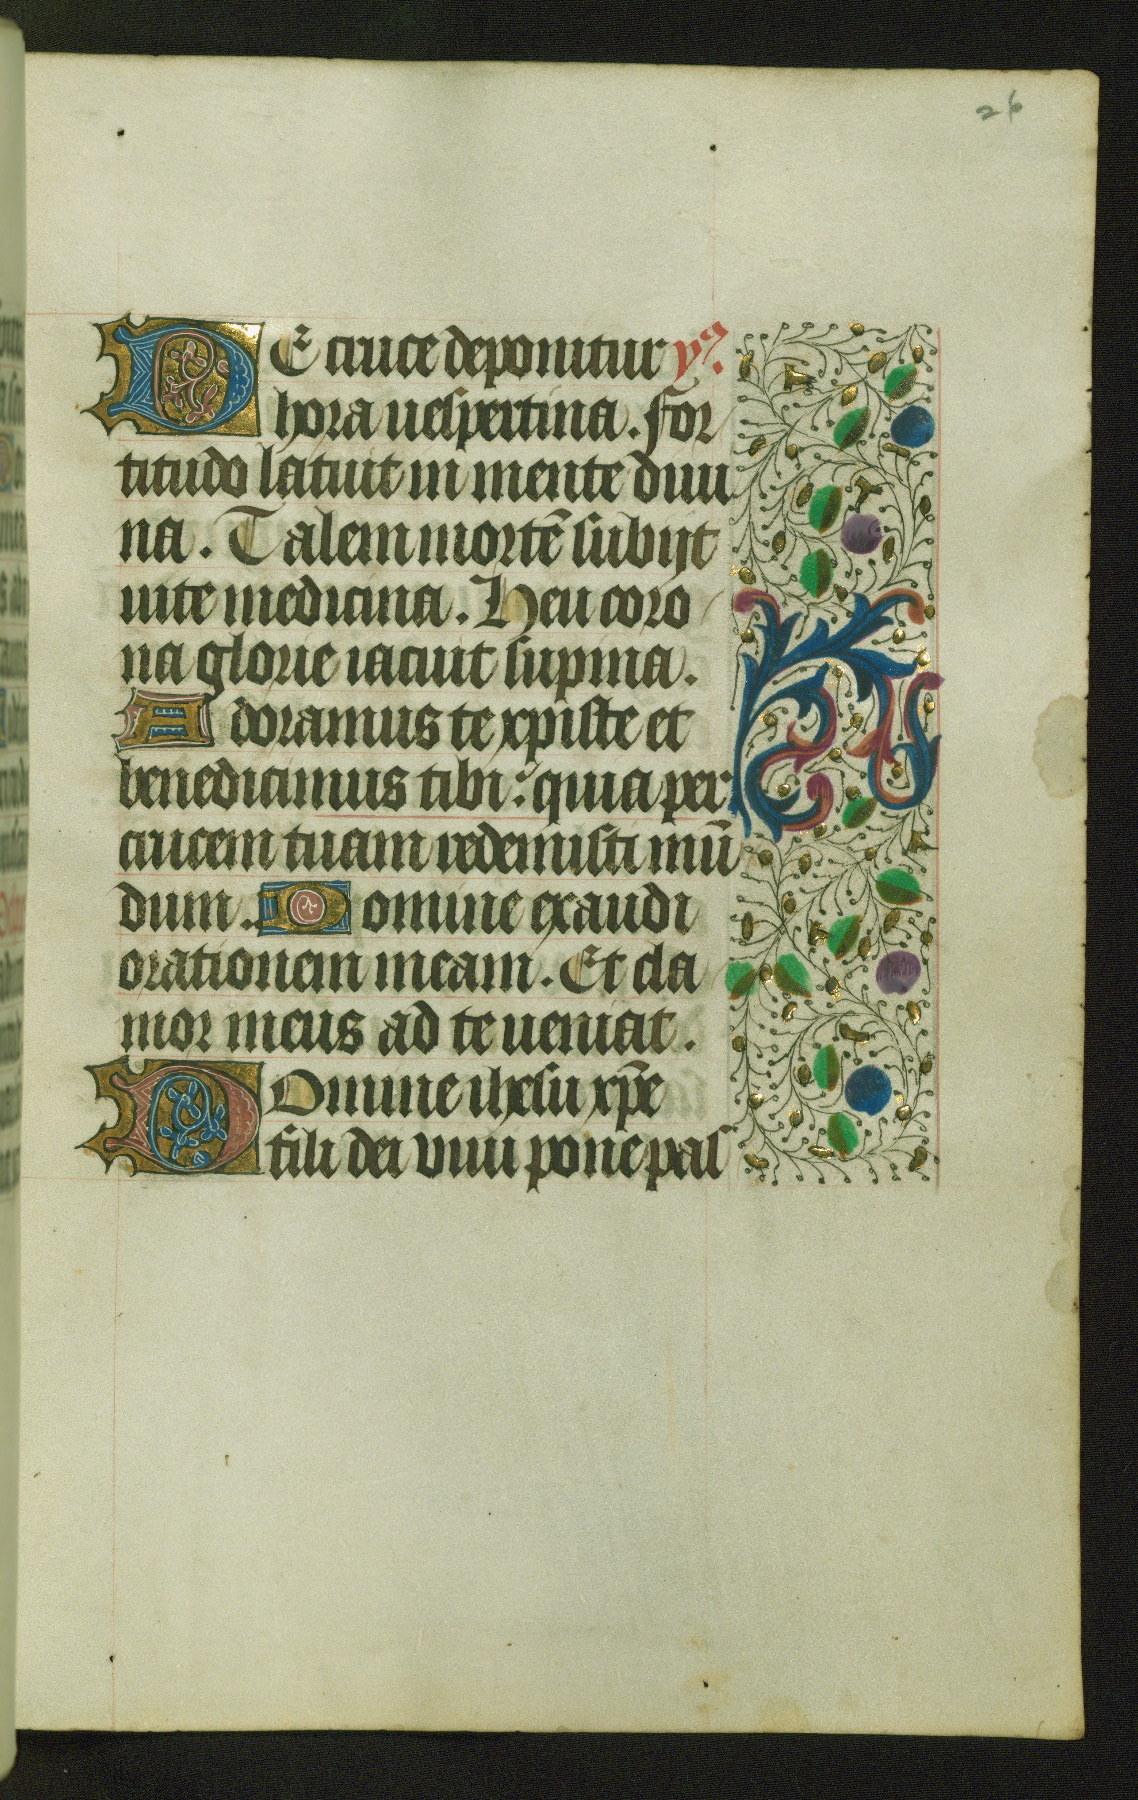 26
DE cruce deponitur yꝰ
hora uespertina. for
titudo latuit in mente diui
na. Talem mortē subijt
uite medicina. Heu coro
na glorie iacuit supina.
Adoramus te xpiste et
benedicimus tibi: quia per
crucem tuam redemisti mū
dum. Domine exaudi
orationem meam. Et cla
mor meus ad te ueniat.
Domine ihesu xp̄e
fili dei viui pone pas